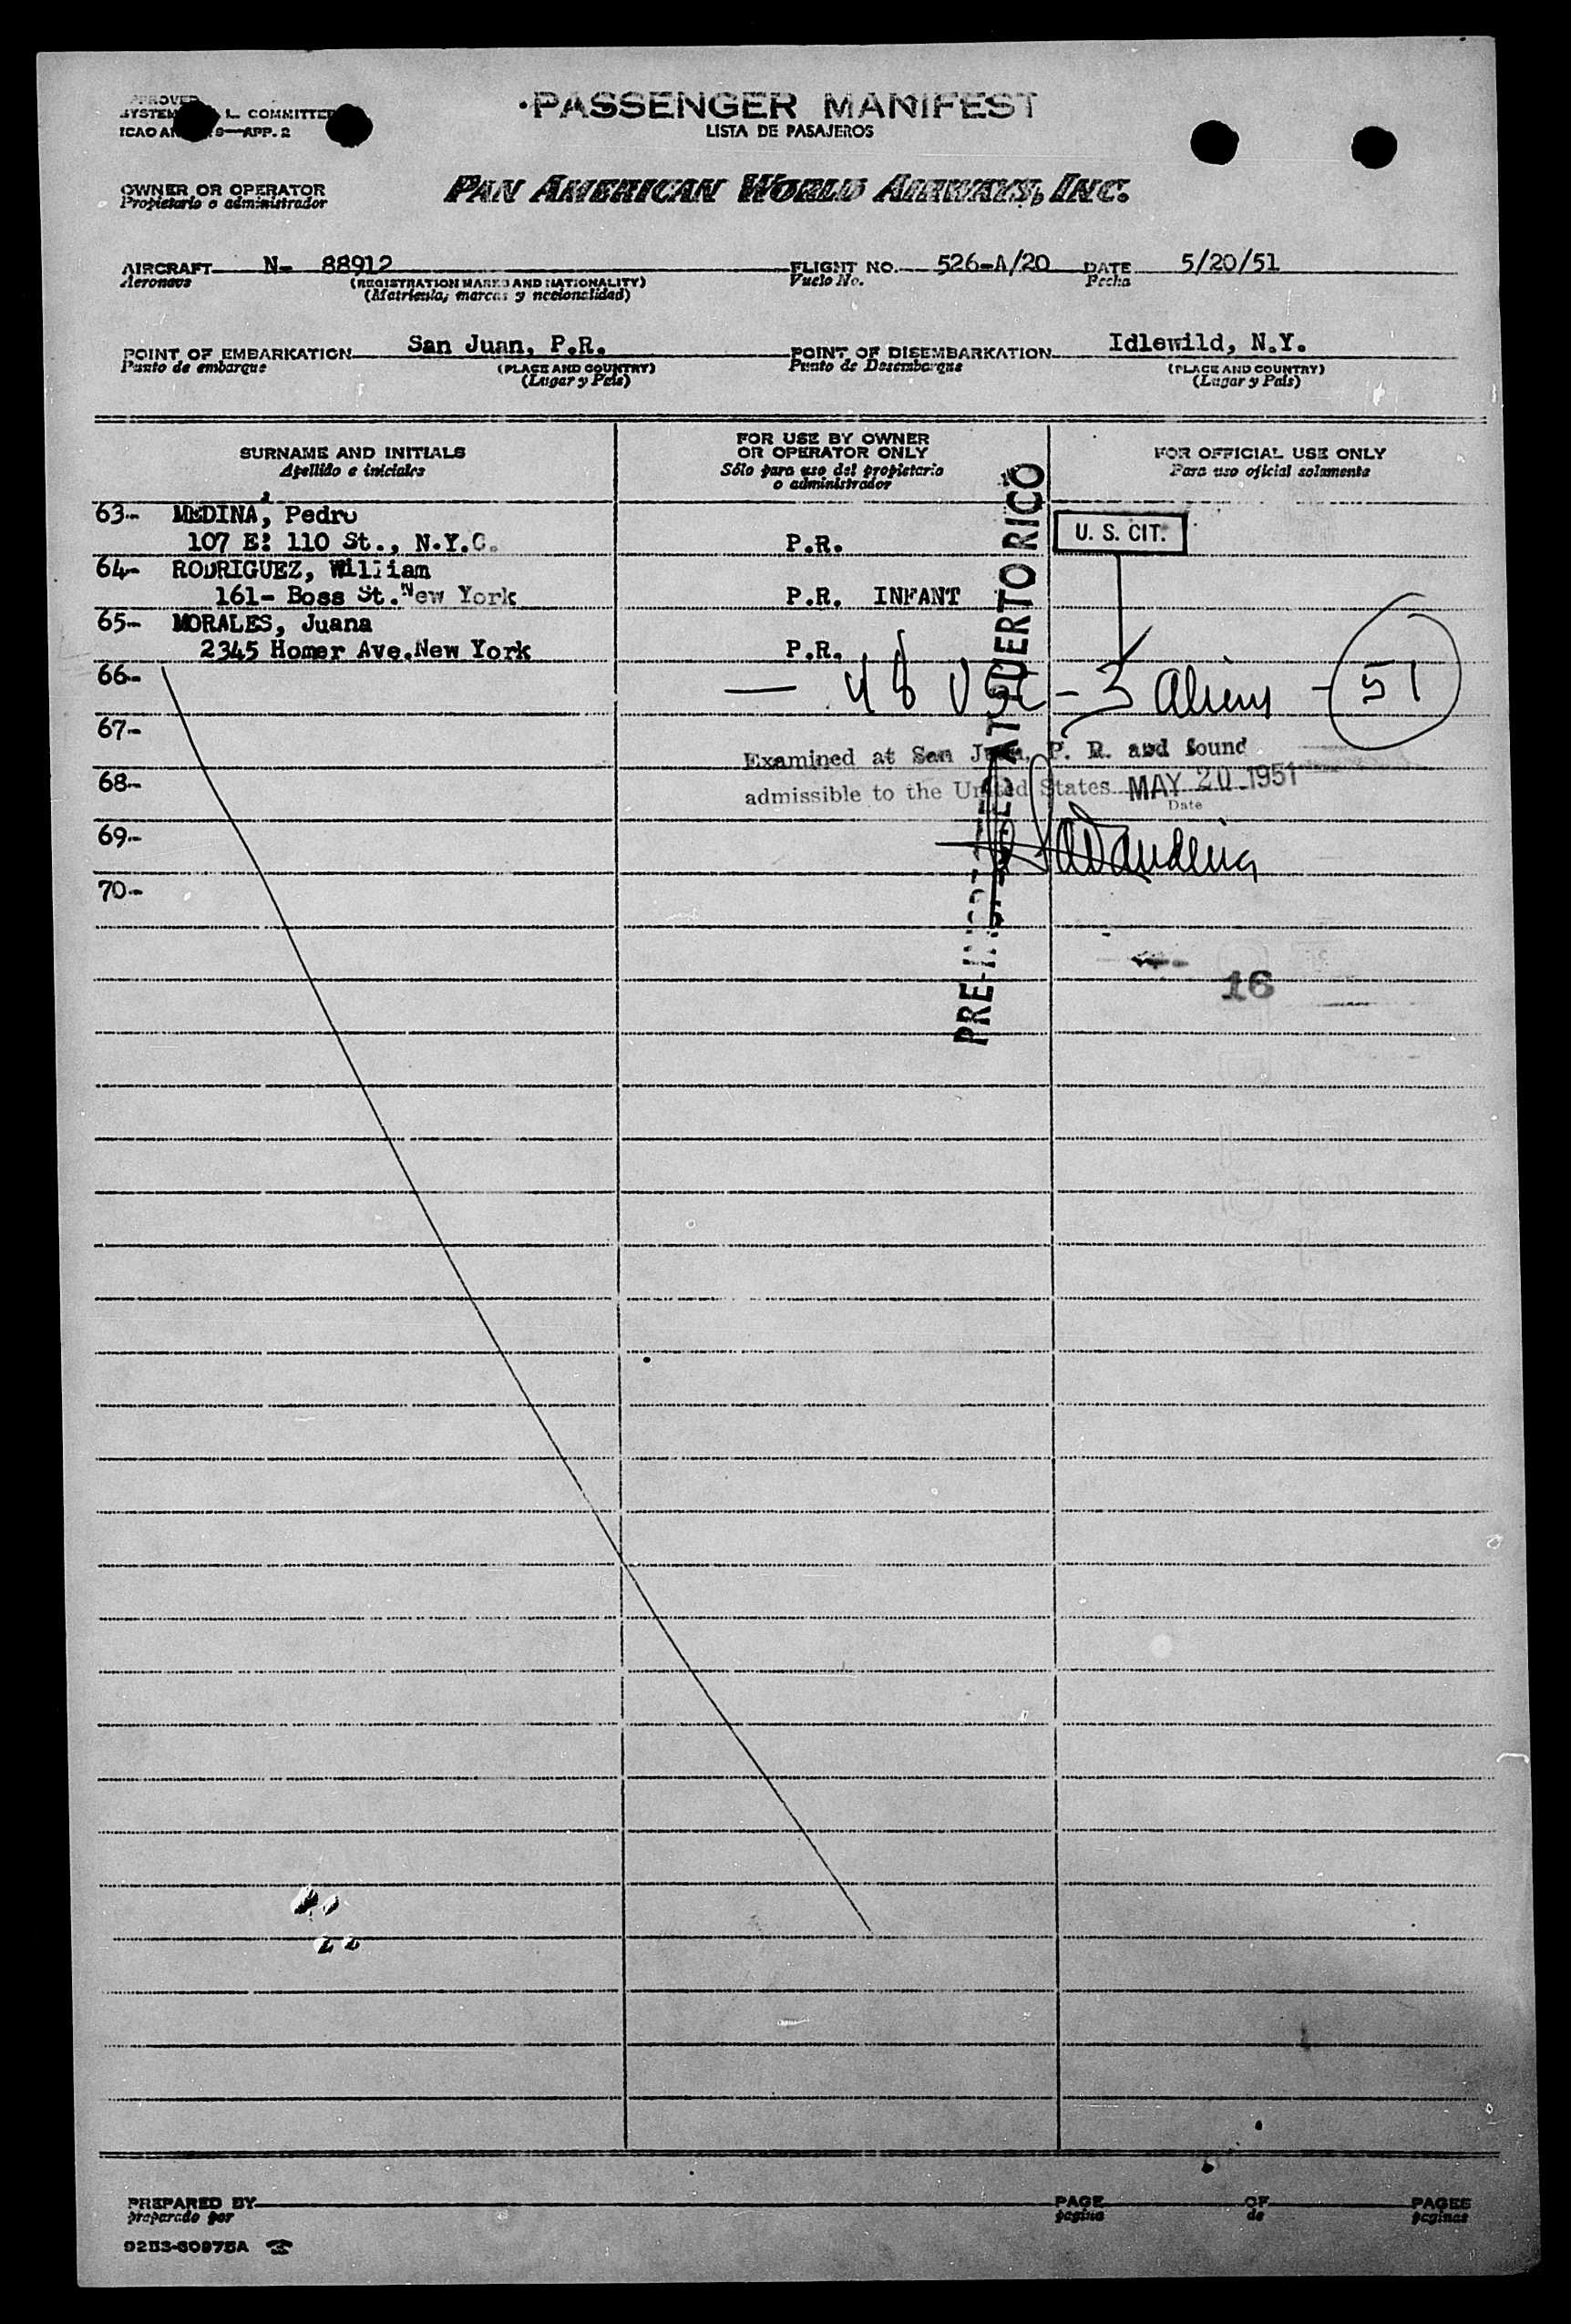 PASSENGER MANIFEST
LISTA DE PASAJEROS
COMMITTEE
APP. 2
OWNER OR OPERATOR
Propietario o administrador
PAN AMERICAN WORLD AIRWAYS, INC.
AIRCRAFT N- 88912 FLIGHT NO. 526-A/20 DATE 5/20/51
Aeronave (REGISTRATION MARKS AND NATIONALITY) Vuelo No. Fecha
(Matricula, marcas y nacionalidad)
POINT OF EMBARKATION San Juan, P.R. POINT OF DISEMBARKATION Idlewild, N.Y.
Punto de embarque (PLACE AND COUNTRY) Punto de Desembarque (PLACE AND COUNTRY)
(Lugar y País) (Lugar y País)
SURNAME AND INITIALS
Apellido e iniciales
FOR USE BY OWNER
OR OPERATOR ONLY
Sólo para uso del propietario
o administrador
FOR OFFICIAL USE ONLY
Para uso oficial solamente
63- MEDINA, Pedro
107 E: 110 St., N.Y.C. P.R. U. S. CIT.
64- RODRIGUEZ, William
161- Boss St. New York P.R. INFANT
65- MORALES, Juana
2345 Homer Ave. New York P.R.
66- — 48 USC - 3 Aliens - 51
67-
Examined at San Juan, P. R. and found
68-
admissible to the United States MAY 20 1951
Date
69-
70-
16
PUERTO RICO
PREPARED BY PAGE OF PAGES
preparado por pagina de paginas